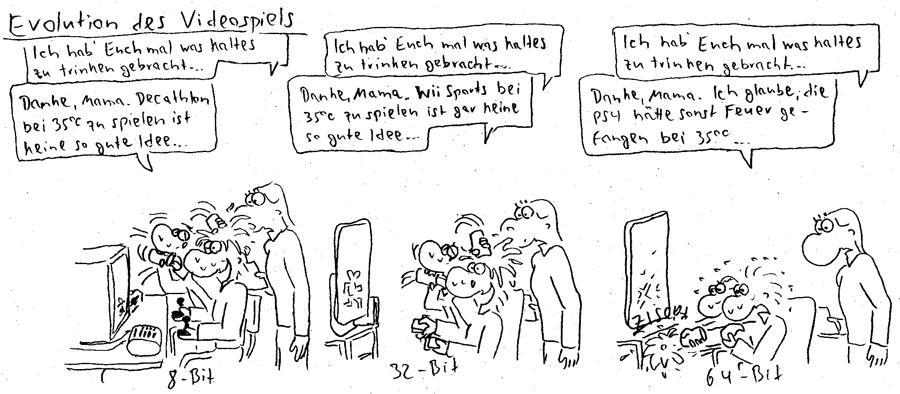 Evolution des Videospiels
Ich hab' Euch mal was kaltes
zu trinken gebracht...
Danke, Mama. Decathlon
bei 35°C zu spielen ist
keine so gute Idee...
8-Bit
Ich hab' Euch mal was kaltes
zu trinken gebracht...
Danke, Mama. Wii Sports bei
35°C zu spielen ist gar keine
so gute Idee...
32-Bit
Ich hab' Euch mal was kaltes
zu trinken gebracht...
Danke, Mama. Ich glaube, die
PS4 hätte sonst Feuer ge-
fangen bei 35°C ...
64-Bit